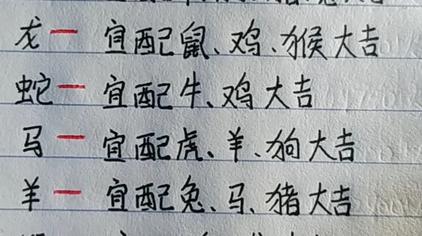 龙一 宜配鼠、鸡、猴大吉
蛇一 宜配牛、鸡大吉
马一 宜配虎、羊、狗大吉
羊一 宜配兔、马、猪大吉